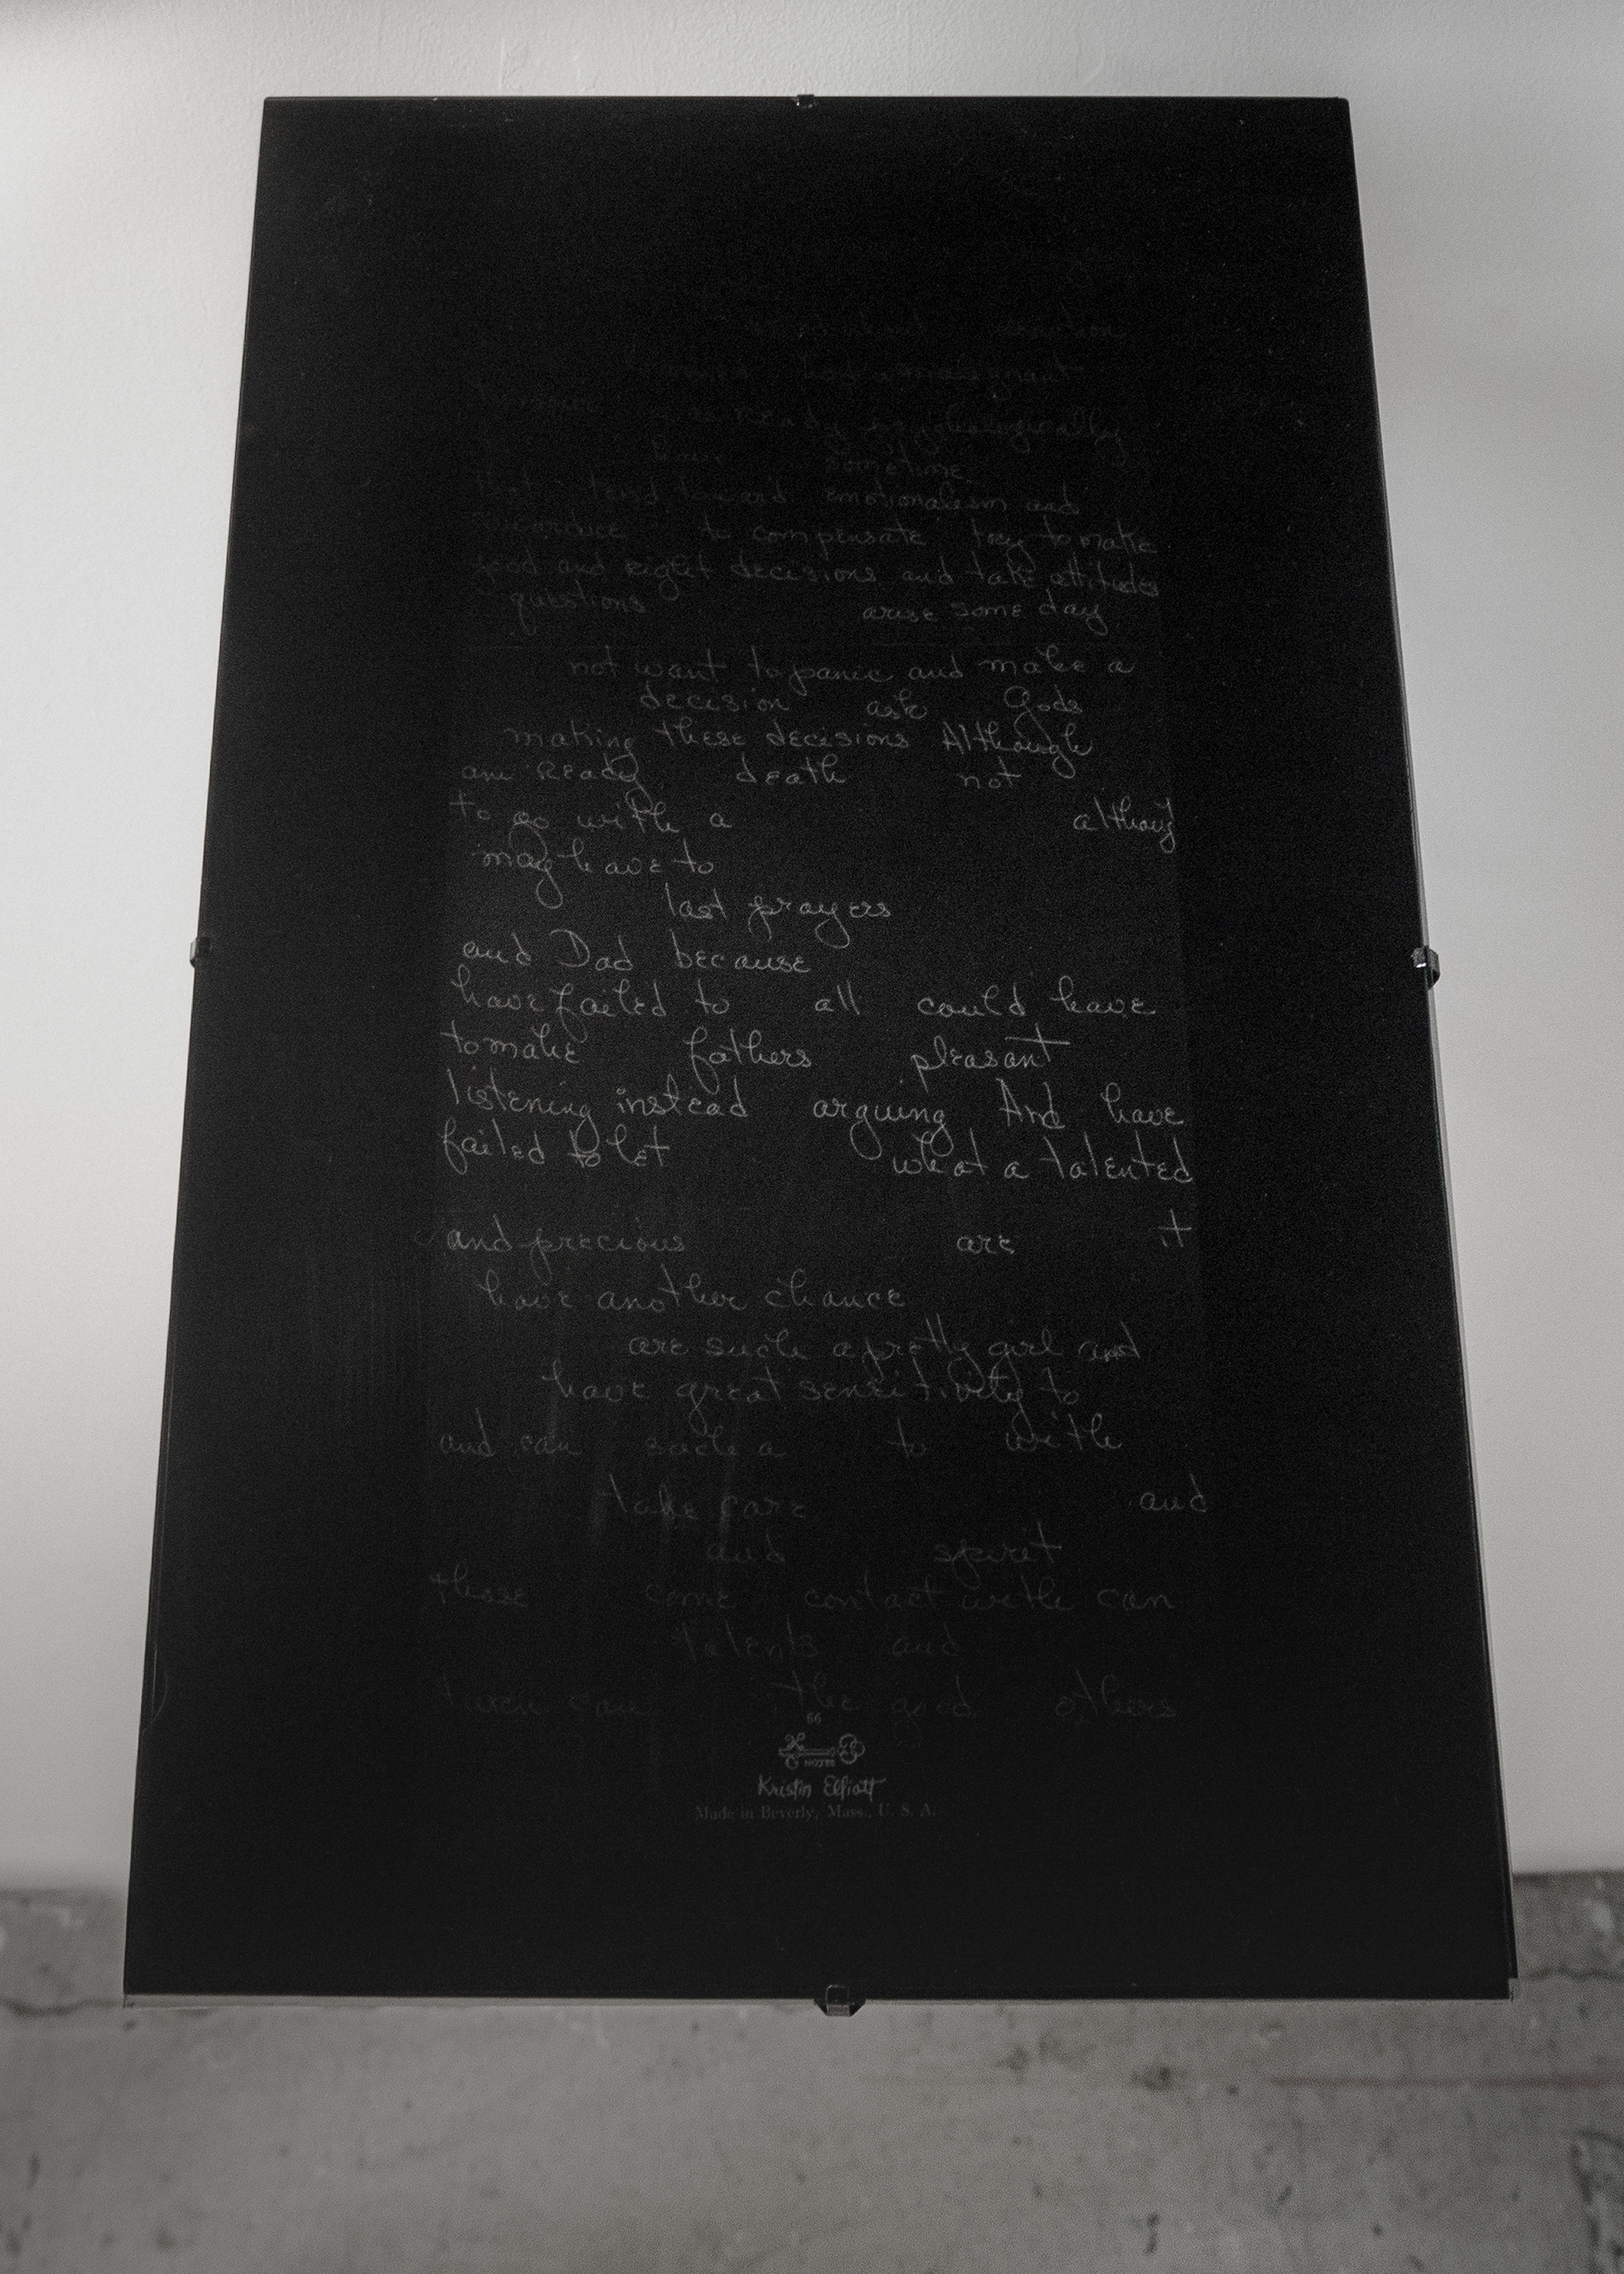 malignant
ready psychologically
sometime
that tend toward emotionalism and
to compensate try to make
good and right decisions and take attitudes
questions arise some day
not want to panic and make a
decision ask Gods
making these decisions Although
am Ready death not
to go with a althoug
may have to
last prayers
and Dad because
have failed to all could have
to make fathers pleasant
listening instead arguing And have
failed to let what a talented
and precious are it
have another chance
are such a pretty girl and
have great sensitivity to
and can such a to with
take care and
and spirit
those come contact with can
talents and
turn can the good others
66
NOTES
Kristin Elliott
Made in Beverly, Mass., U. S. A.